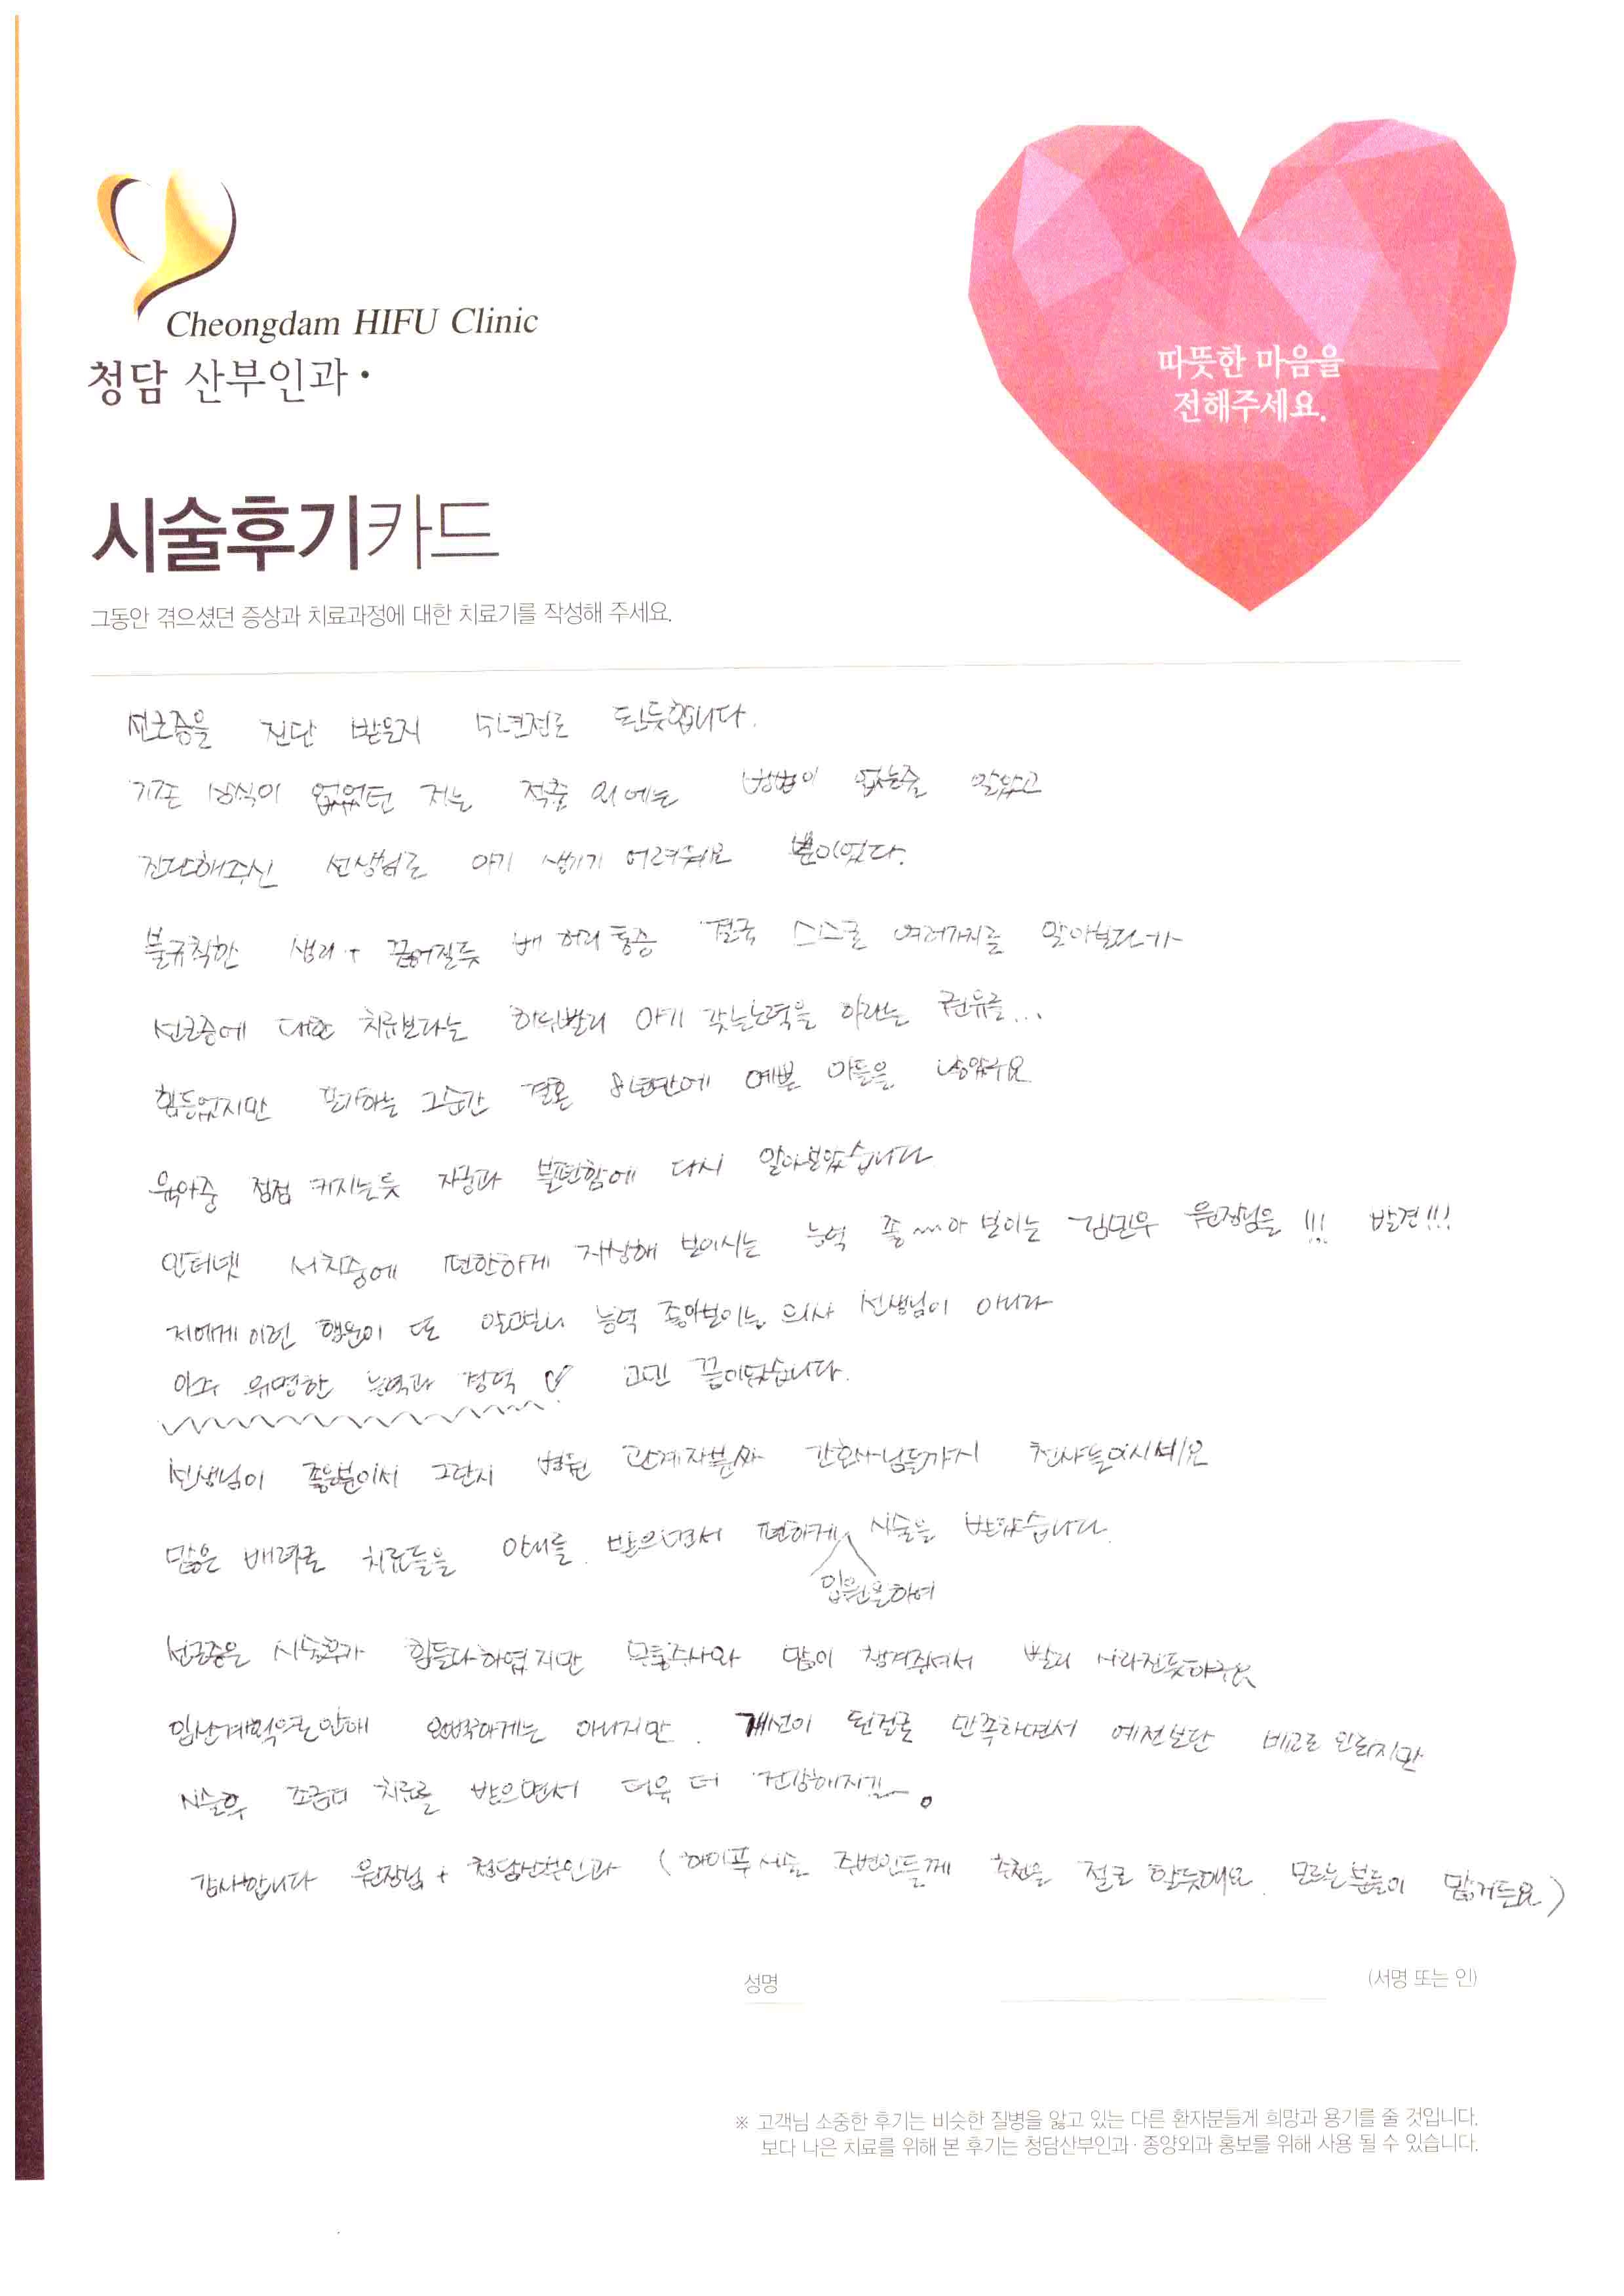 Cheongdam HIFU Clinic
청담 산부인과·
따뜻한 마음을
전해주세요.
시술후기카드
그동안 겪으셨던 증상과 치료과정에 대한 치료기를 작성해 주세요.
선근증을 진단 받은지 5년전로 된듯합니다.
기존 상식이 없었던 저는 적출 외에는 방법이 없는줄 알았고
진단해주신 선생님도 아기 생기기 어려워요 뿐이었다.
불규칙한 생리 + 끊어질듯 배 허리 통증 결국 스스로 여러가지를 알아보다가
선근증에 대한 치료보다는 하루빨리 아기 갖는노력을 하라는 권유를...
힘들었지만 포기하는 그순간 결혼 8년만에 예쁜 아들을 낳았구요
육아중 점점 커지는듯 자궁과 불편함에 다시 알아보았습니다
인터넷 서치중에 편안하게 자상해 보이시는 능력 좋~~아 보이는 김민우 원장님을 !!! 발견!!!
저에게 이런 행운이 또 알고보니 능력 좋아보이는 의사 선생님이 아니라
아주 유명한 능력과 경력 ♡ 고민 끝이었습니다.
선생님이 좋은분이셔서 그런지 병원 관계자분과 간호사님들까지 천사들이시네요
많은 배려로 치료들을 안내를 받으면서 편하게 입원을하여 시술을 받았습니다.
선근증은 시술후가 힘들다하였지만 무통주사와 많이 챙겨주셔서 빨리 사라진듯하구요
임신계획으로인해 완벽하게는 아니지만. 개선이 된걸로 만족하면서 예전보단 비교도 안되지만
시술후 조금더 치료를 받으면서 더욱 더 건강해지길~.
감사합니다 원장님 + 청담산부인과 (하이푸 시술 주변인들께 추천을 절로 할듯해요. 모르는분들이 많거든요)
성명
(서명 또는 인)
※ 고객님 소중한 후기는 비슷한 질병을 앓고 있는 다른 환자분들게 희망과 용기를 줄 것입니다.
보다 나은 치료를 위해 본 후기는 청담산부인과·종양외과 홍보를 위해 사용 될 수 있습니다.